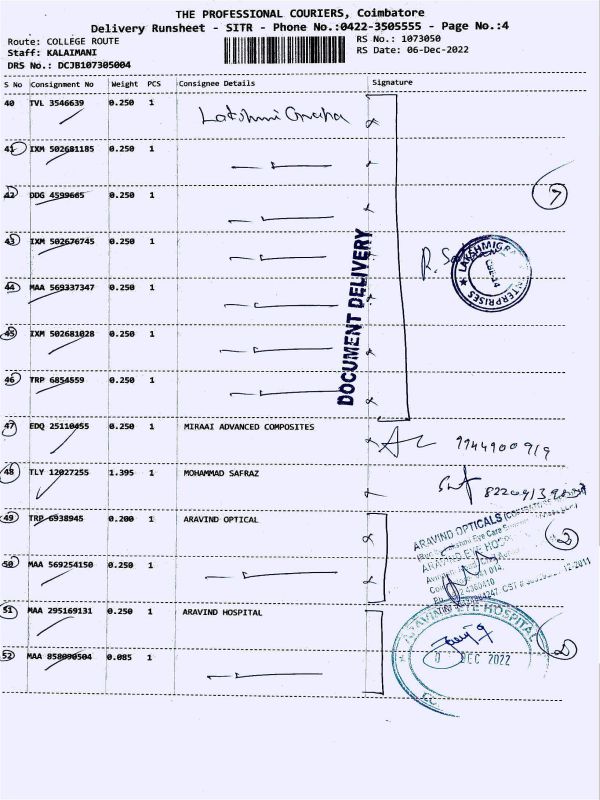 THE PROFESSIONAL COURIERS, Coimbatore
Delivery Runsheet - SITR - Phone No.:0422-3505555 - Page No.:4
Route: COLLEGE ROUTE
RS No.: 1073050
Staff: KALAIMANI
RS Date: 06-Dec-2022
DRS No.: DCJB107305004
S No Consignment No Weight PCS Consignee Details Signature
40 TVL 3546639 0.250 1
41 IXM 502681185 0.250 1
42 DDG 4599665 0.250 1
7
43 IXM 502676745 0.250 1
44 MAA 569337347 0.250 1
45 IXM 502681028 0.250 1
46 TRP 6854559 0.250 1
DOCUMENT DELIVERY
47 EDQ 25110455 0.250 1 MIRAAI ADVANCED COMPOSITES
9944900919
48 TLY 12027255 1.395 1 MOHAMMAD SAFRAZ
49 TRP 6938945 0.200 1 ARAVIND OPTICAL
ARAVIND OPTICALS
ARAVIND EYE HOSPITAL
2
50 MAA 569254150 0.250 1
51 MAA 295169131 0.250 1 ARAVIND HOSPITAL
ARAVIND EYE HOSPITAL
2
DEC 2022
52 MAA 858090504 0.085 1